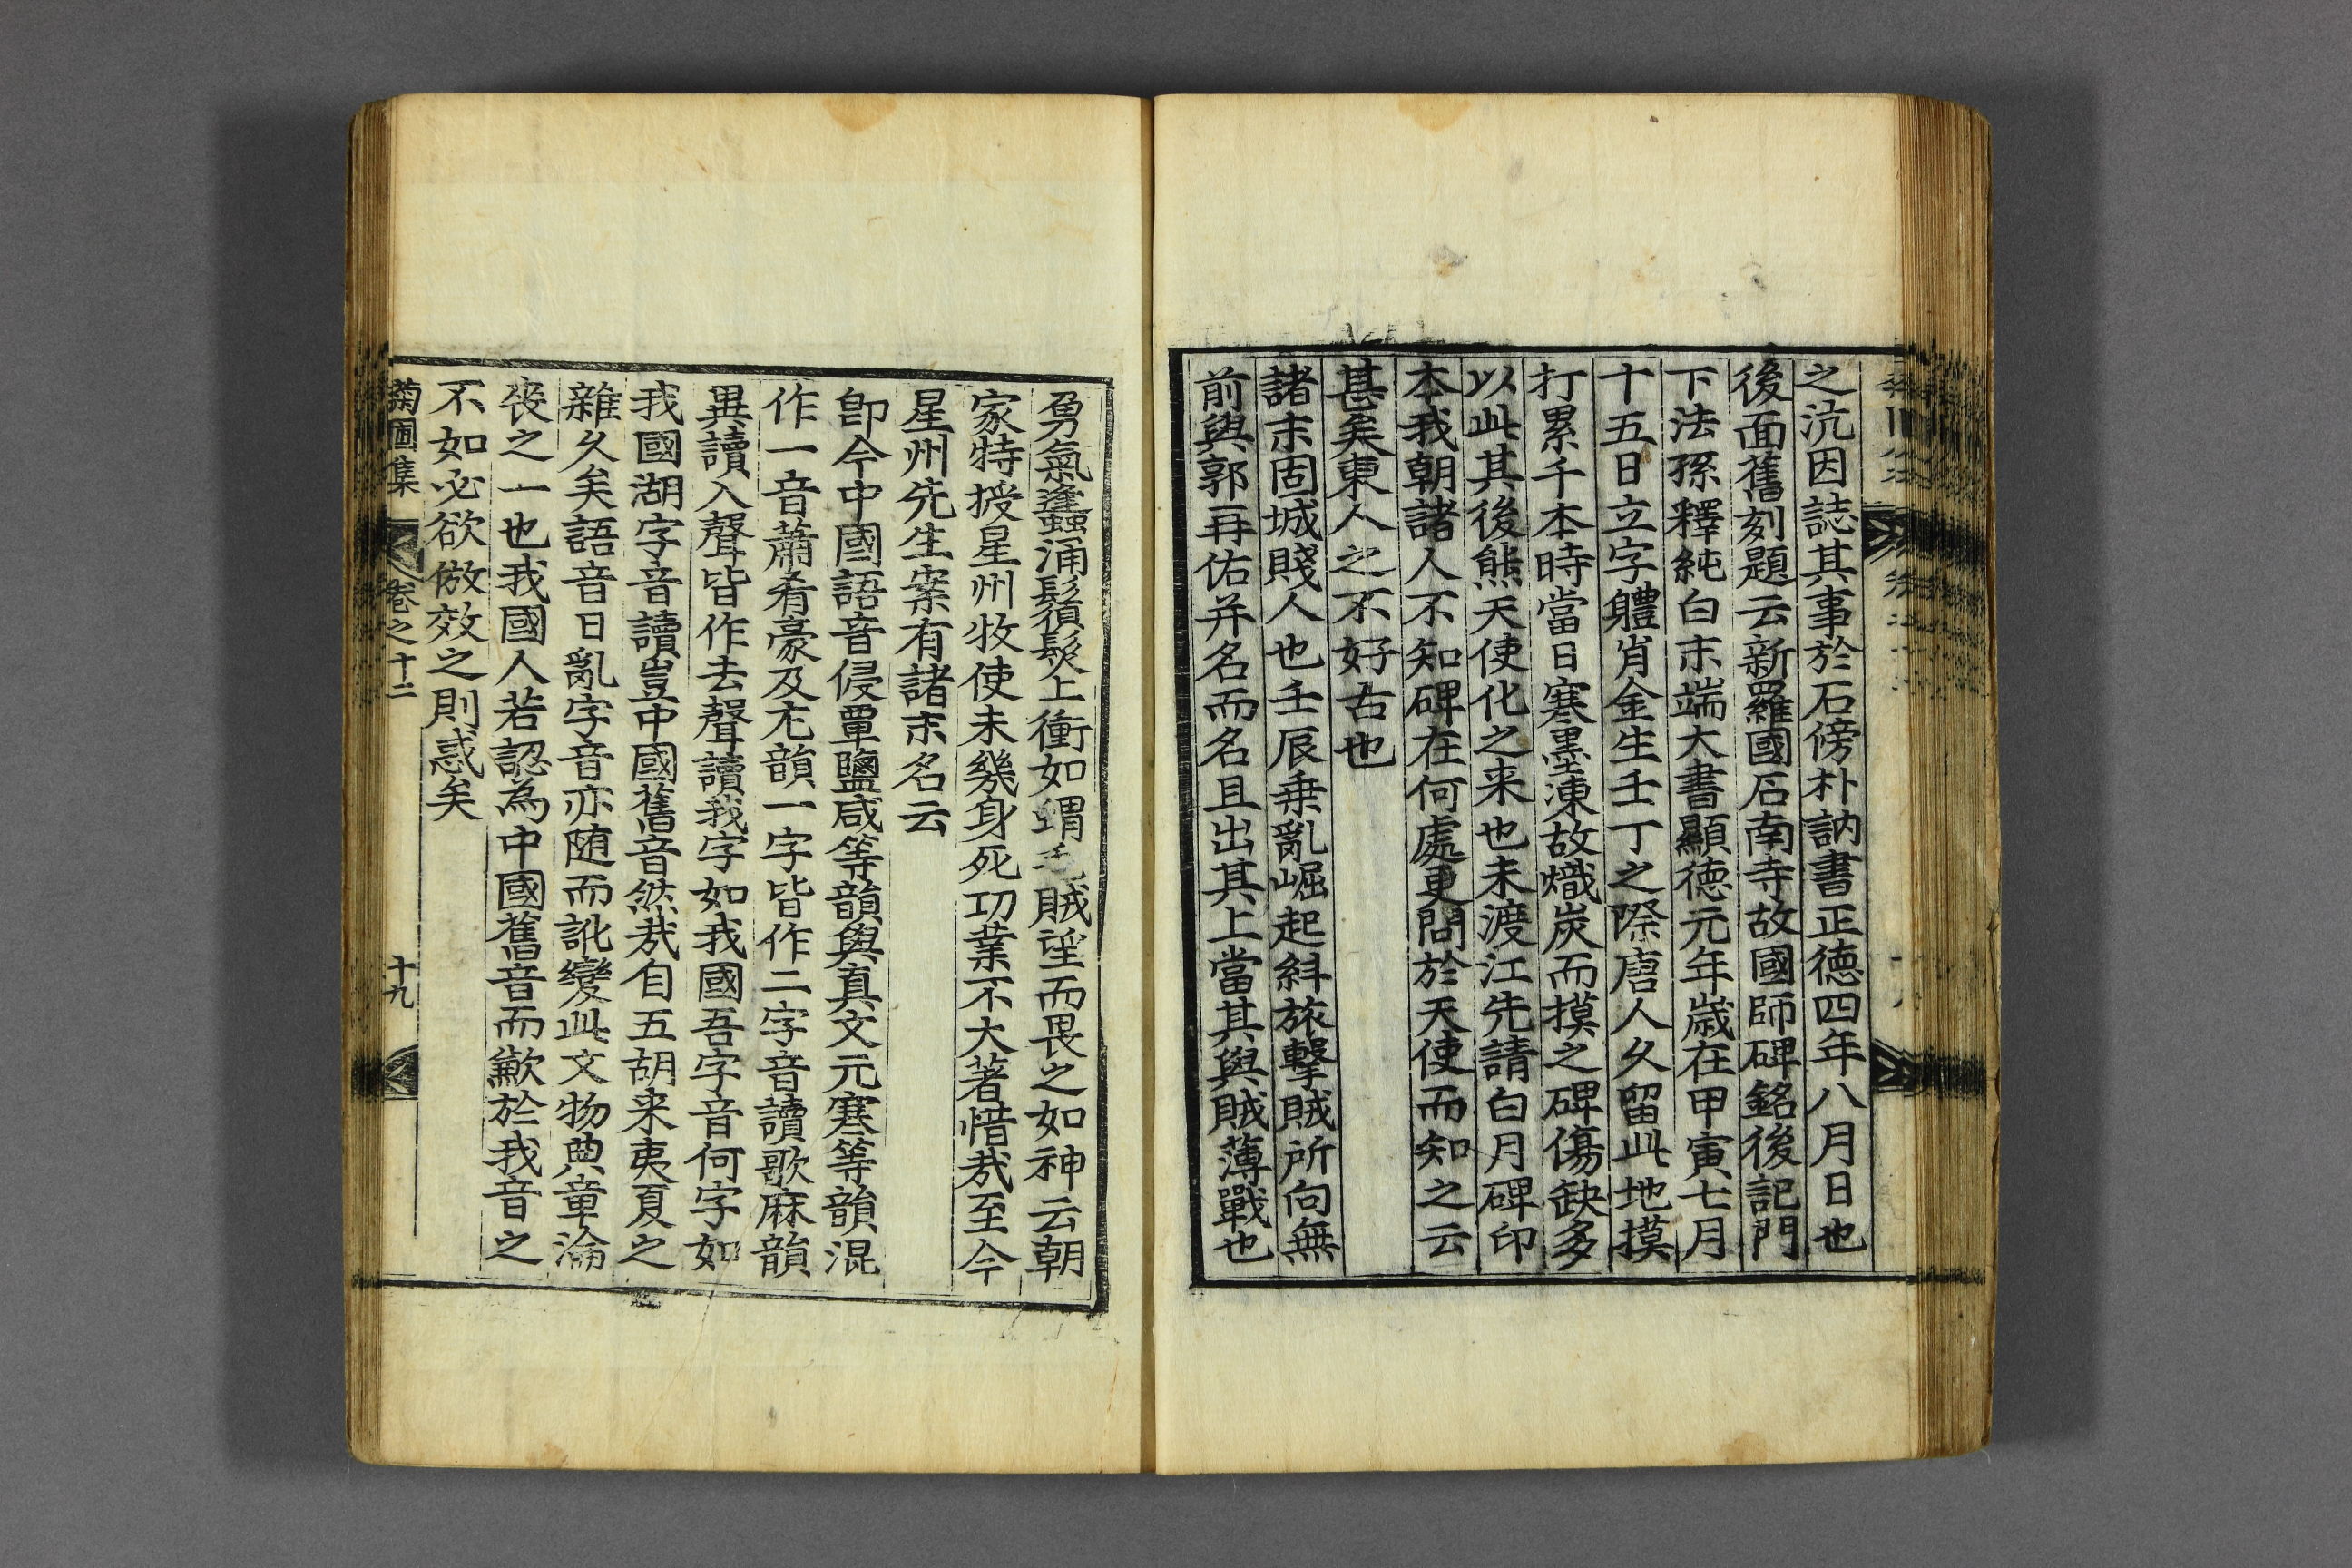 之沆因誌其事於石傍朴訥書正德四年八月日也
後面舊刻題云新羅國石南寺故國師碑銘後記門
下法孫釋純白末端大書顯德元年歲在甲寅七月
十五日立字軆肖金生壬丁之際唐人久留此地摸
打累千本時當日寒墨凍故熾炭而摸之碑傷缺多
以此其後熊天使化之来也未渡江先請白月碑印
本我朝諸人不知碑在何處更問於天使而知之云
甚矣東人之不好古也
諸末固城賤人也壬辰乗亂崛起糾旅擊賊所向無
前與郭再佑并名而名且出其上當其與賊薄戰也
勇氣蓬涌鬚髮上衝如蝟毛賊望而畏之如神云朝
家特授星州牧使未幾身死功業不大著惜㦲至今
星州先生案有諸末名云
卽今中國語音侵覃鹽咸等韻與真文元寒等韻混
作一音蕭肴豪及尤韻一字皆作二字音讀歌麻韻
異讀入聲皆作去聲讀我字如我國吾字音何字如
我國湖字音讀豈中國舊音然㦲自五胡来夷夏之
雜久矣語音日亂字音亦随而訛變此文物典章淪
喪之一也我國人若認為中國舊音而歉於我音之
不如必欲倣效之則惑矣
菊圃集
卷之十二
十九